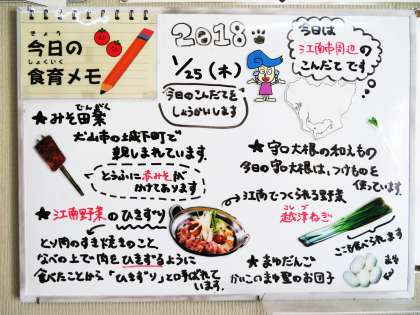 きょう
今日の
しょくいく
食育メモ
2018
1/25(木)
今日のこんだてを
しょうかいします
今日は
江南市周辺の
こんだてです
★みそ田楽
でんがく
犬山市の城下町で
親しまれています。
とうふに赤みそが
かけてあります
★守口大根の和えもの
今日の守口大根は、つけものを
使っています。
★江南野菜のひきずり
とり肉のすき焼きのこと
なべの上で肉をひきずるように
食べたことから「ひきずり」と呼ばれて
います。
江南でつくられる野菜
越津ねぎ
ここも食べられます
★まゆだんご
かいこのまゆ型のお団子
まゆ